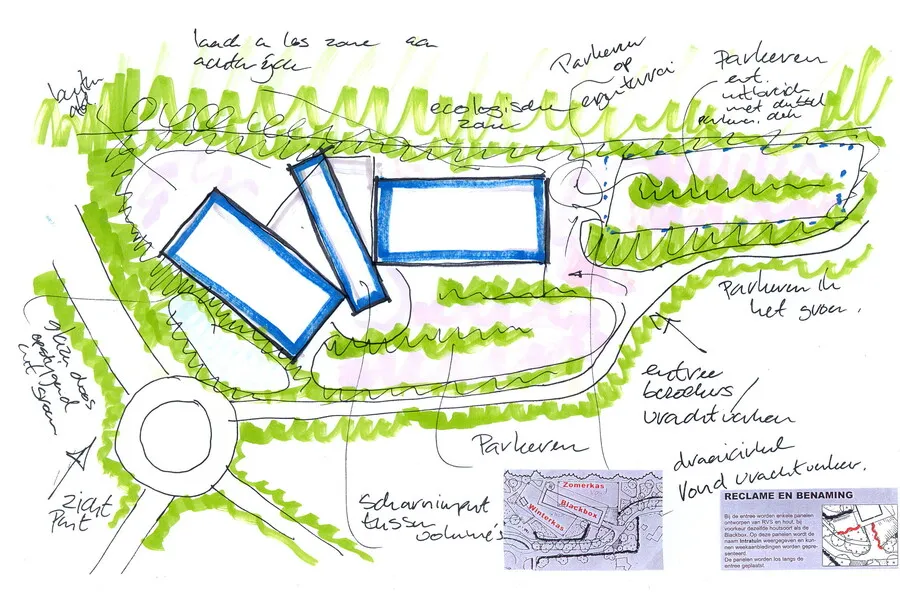 laad n los zone aan
achterzijde
Parkeren
op
eigen terrein
Parkeren
evt.
uitbreid
met dubbel
parkeer dek
ecologische
zone
Parkeren in
het groen.
glazen doos
opstijgend
uit groen
entree
bezoekers/
vrachtverkeer
Parkeren
draaicirkel
rond vrachtverkeer.
zicht
Punt
Scharnierpunt
tussen
volumes
Zomerkas
Blackbox
Winterkas
RECLAME EN BENAMING
Bij de entree worden enkele panelen
ontworpen van RVS en hout, bij
voorkeur dezelfde houtsoort als de
Blackbox. Op deze panelen wordt de
naam Intratuin weergegeven en kun-
nen weekaanbiedingen worden gepre-
senteerd.
De panelen worden los langs de
entree geplaatst.